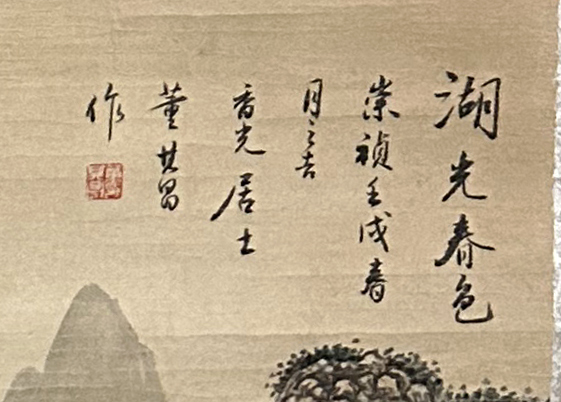 湖光春色
崇禎壬戌春
月之吉
香光居士
董其昌
作